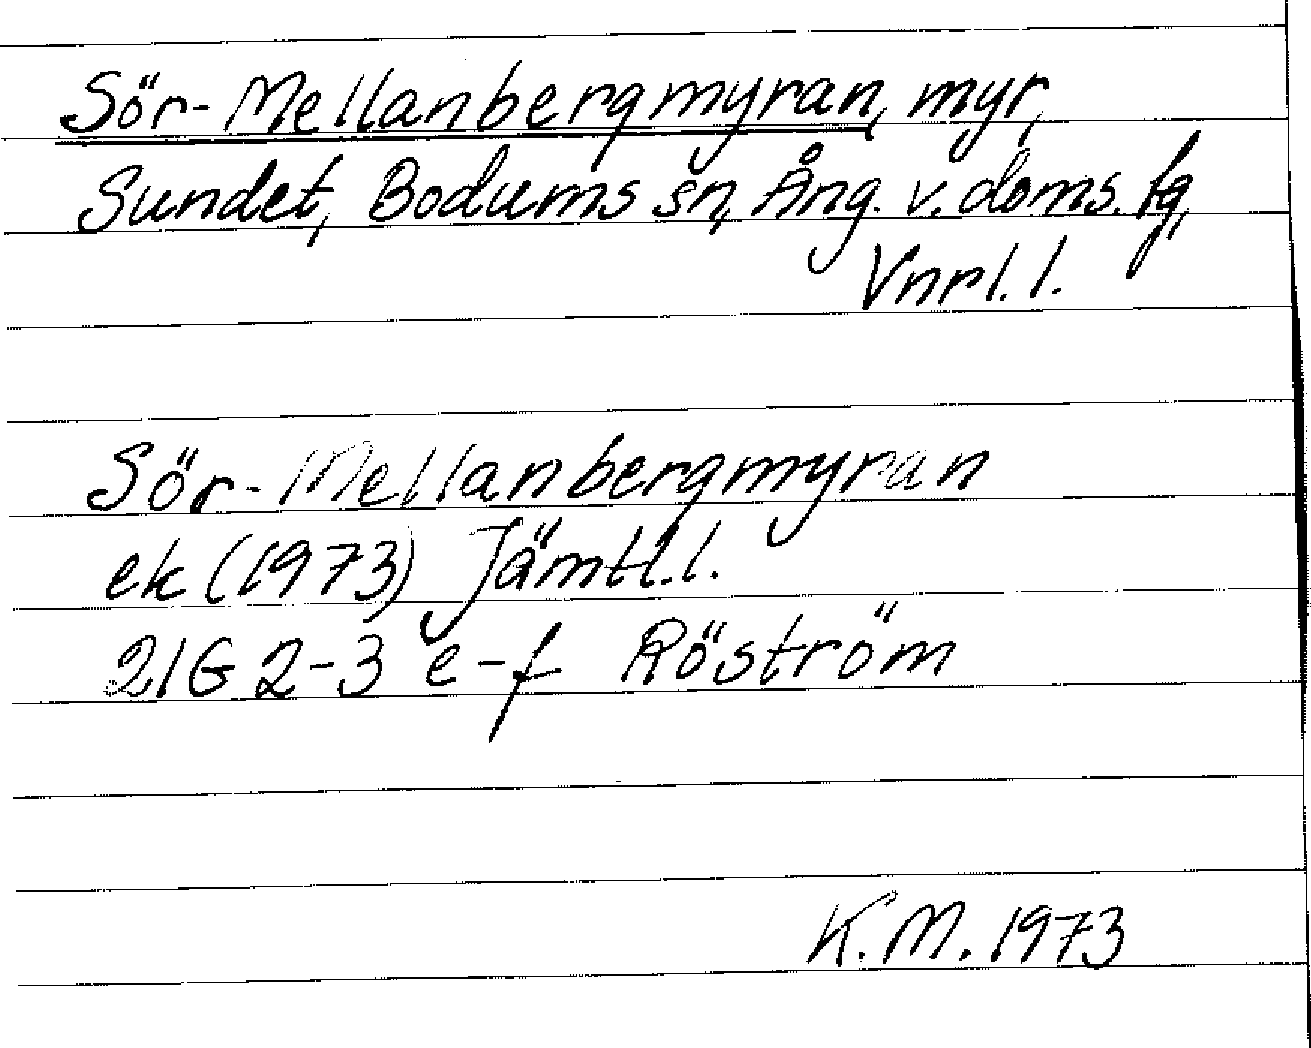 Sör-Mellanbergmyran, myr,
Sundet, Bodums sn, Ång. v. doms. tg,
Vnrl. l.
Sör-Mellanbergmyran
ek (1973) Jämtl. l.
21G 2-3 e-f Röström
K. M. 1973